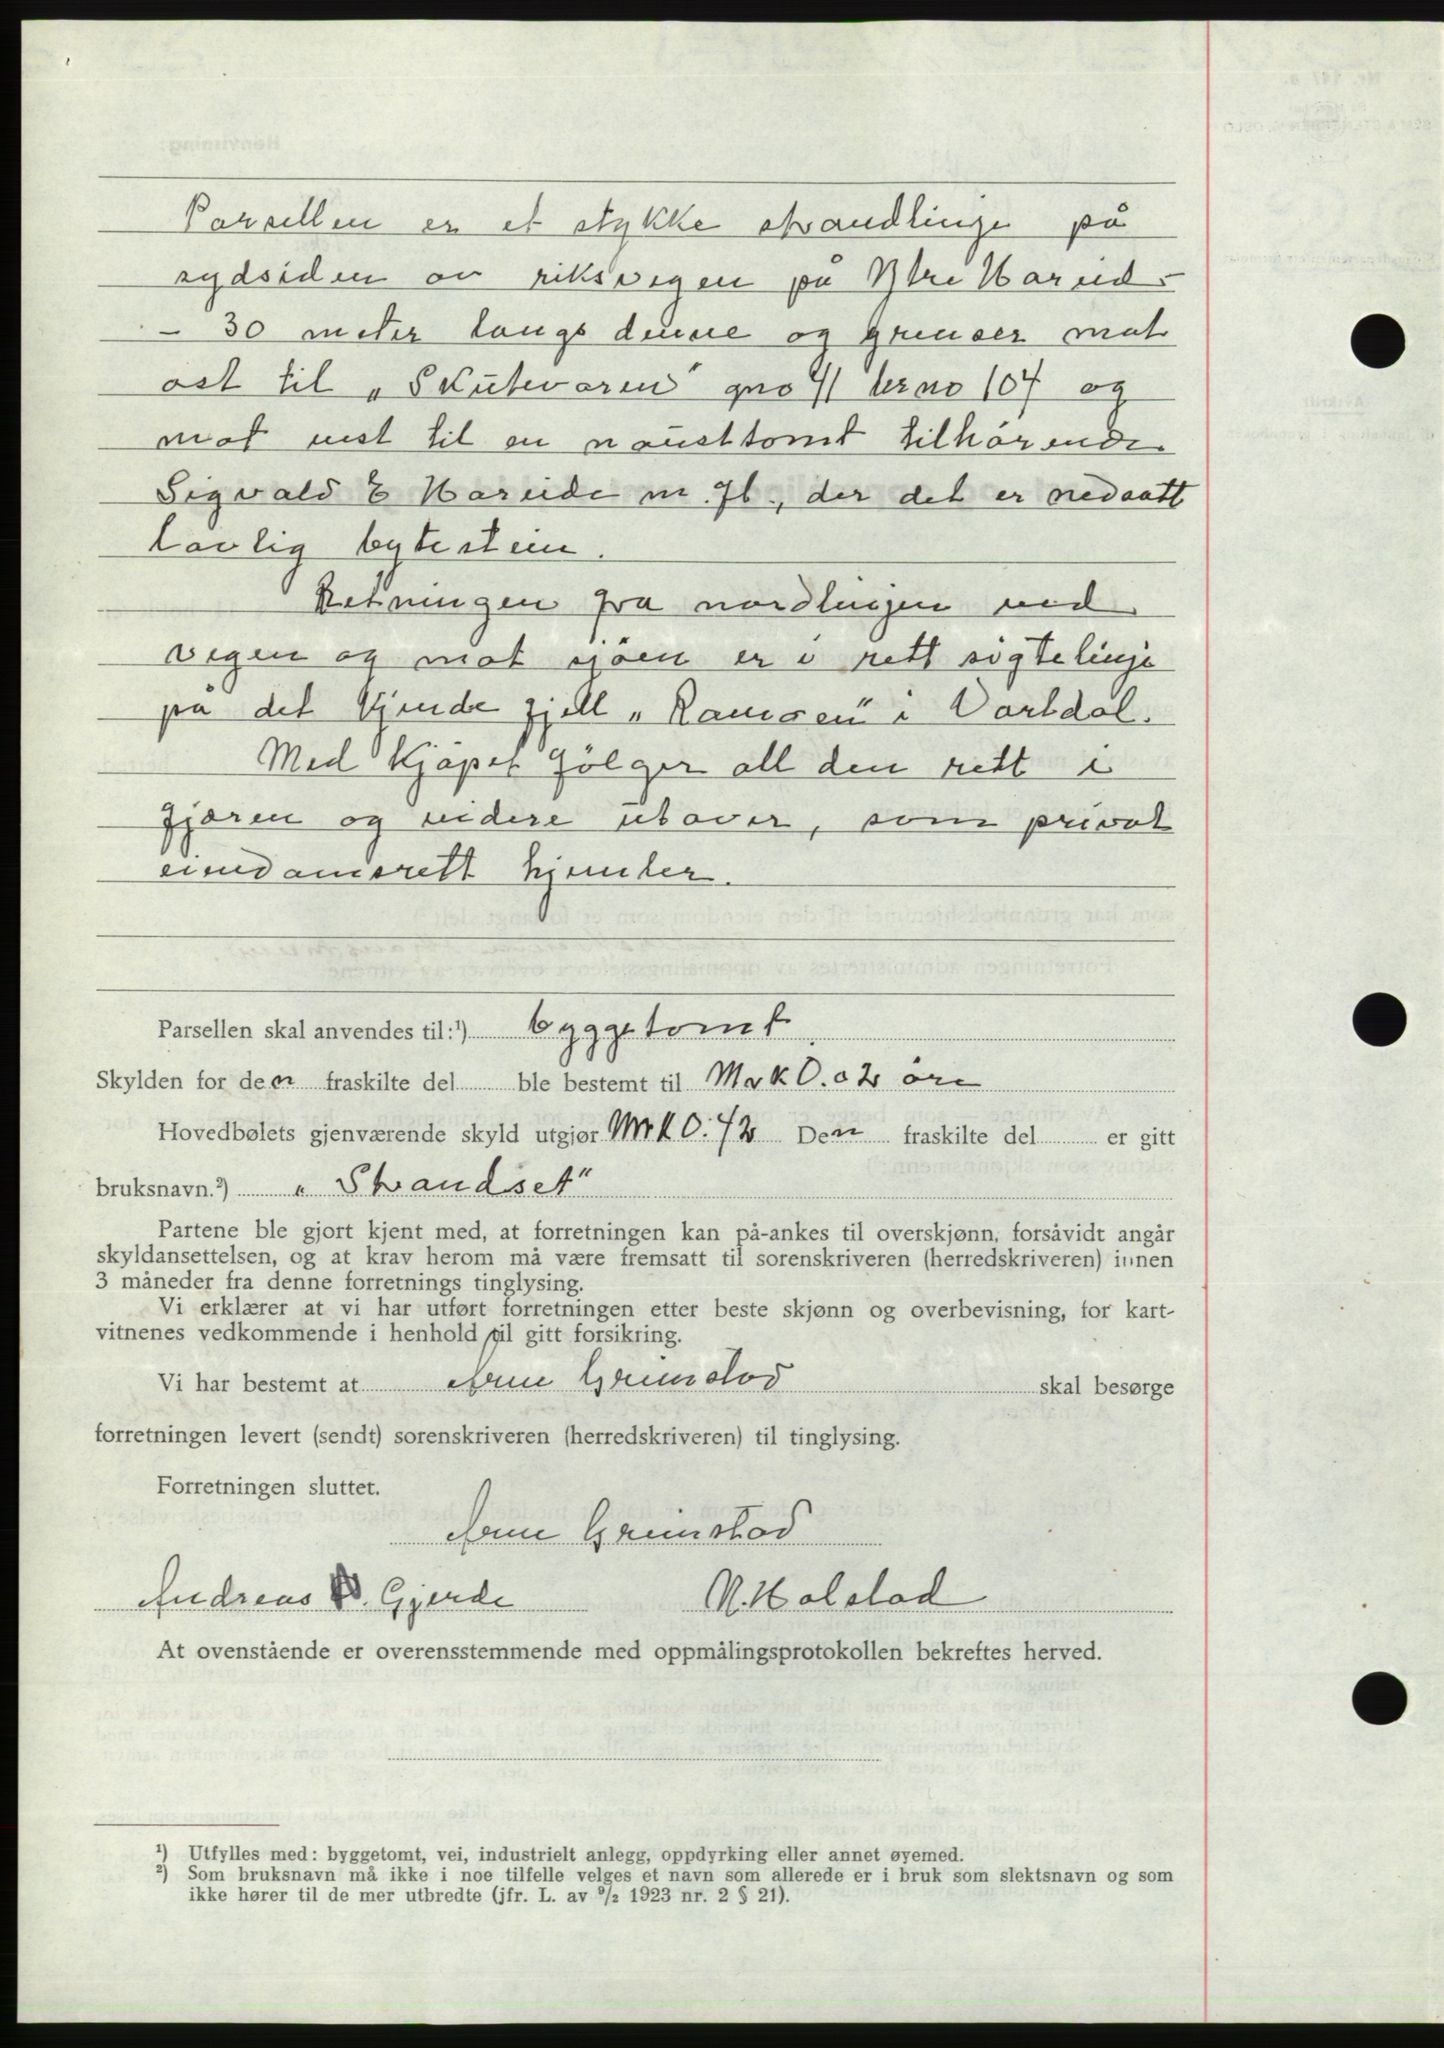 Parsellen er et stykke strandlinje på
sydsiden av riksvegen på Ytre Hareid -
- 30 meter langs denne og grenser mot
øst til „Skutevaren" gno 41 brno 107 og
mot vest til en nausttomt tilhørende
Sigvald E Hareide m. fl., der det er nedsatt
lovlig bytestein.
Retningen fra nordlinjen ved
vegen og mot sjøen er i rett sigtelinje
på det kjende fjell „Ramoen" i Vartdal.
Med kjøpet følger all den rett i
fjøren og videre utover, som privat
eiendomsrett hjemler.
Parsellen skal anvendes til:¹) byggetomt
Skylden for den fraskilte del ble bestemt til Mrk 0.02 øre
Hovedbølets gjenværende skyld utgjør Mrk 0.42 Den fraskilte del er gitt
bruksnavn.²) „Strandset"
Partene ble gjort kjent med, at forretningen kan på-ankes til overskjønn, forsåvidt angår
skyldansettelsen, og at krav herom må være fremsatt til sorenskriveren (herredskriveren) innen
3 måneder fra denne forretnings tinglysing.
Vi erklærer at vi har utført forretningen etter beste skjønn og overbevisning, for kart-
vitnenes vedkommende i henhold til gitt forsikring.
Vi har bestemt at Arne Grimstad skal besørge
forretningen levert (sendt) sorenskriveren (herredskriveren) til tinglysing.
Forretningen sluttet.
Arne Grimstad
Andreas Gjerde N. Holstad
At ovenstående er overensstemmende med oppmålingsprotokollen bekreftes herved.
¹) Utfylles med: byggetomt, vei, industrielt anlegg, oppdyrking eller annet øyemed.
²) Som bruksnavn må ikke i noe tilfelle velges et navn som allerede er i bruk som slektsnavn og som
ikke hører til de mer utbredte (jfr. L. av ⁹/₂ 1923 nr. 2 § 21).